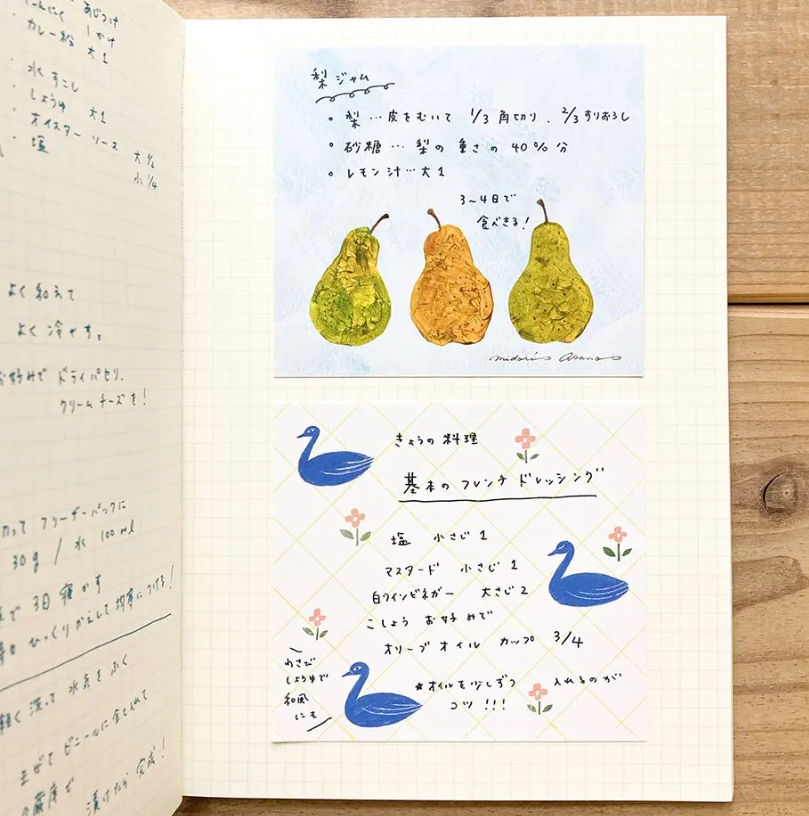 カレー粉 大1
・水 すこし
・しょうゆ 大1
・オイスター ソース 大1/2
・塩 小1/4
よく和えて
よく冷やす。
お好みで ドライパセリ、
クリームチーズを!
フリーザーパックに
30g / 水 100ml
で 3日 寝かす
ひっくりかえして 均等につける!
軽く 洗って 水気を ふく
まぜて ビニールに 全て入れて
漬けたら 完成!
梨ジャム
・梨…皮をむいて 1/3 角切り、2/3 すりおろし
・砂糖…梨の 重さの 40%分
・レモン汁…大1
3〜4日で
食べきる!
midoris asano
きょうの 料理
基本の フレンチ ドレッシング
塩 小さじ 1
マスタード 小さじ 1
白ワインビネガー 大さじ2
こしょう お好みで
オリーブ オイル カップ 3/4
★オイルを少しずつ 入れるのが
コツ!!!
わさび
しょうゆで
和風
にも